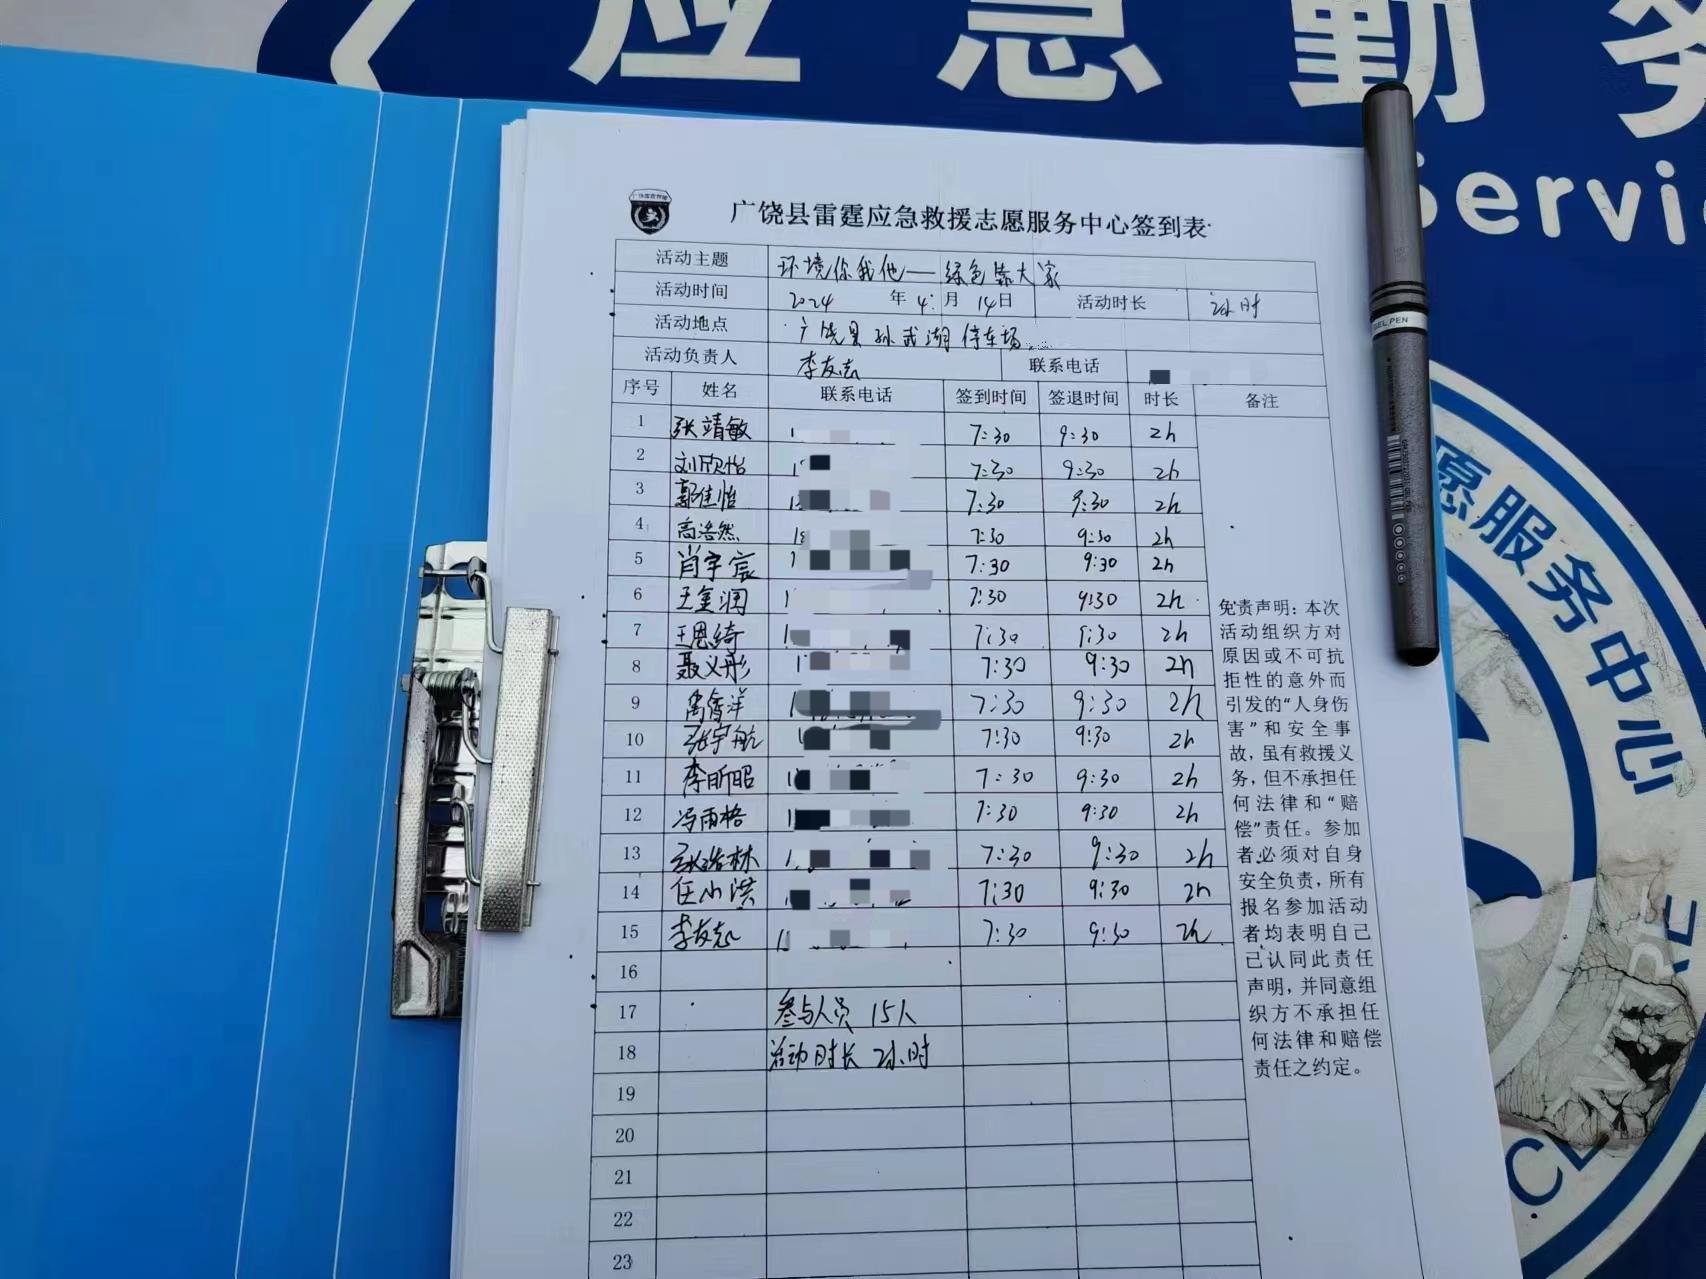 应急勤务
Servi
广饶县雷霆应急救援志愿服务中心签到表
活动主题 环境你我他——绿色靠大家
活动时间 2024 年 4 月 14日 活动时长 2小时
活动地点 广饶县孙武湖停车场
活动负责人 李友志 联系电话
序号 姓名 联系电话 签到时间 签退时间 时长 备注
1 张靖敏 1 7:30 9:30 2h
2 刘欣怡 1 7:30 9:30 2h
3 郭佳怡 1 7:30 9:30 2h
4 高浩然 1 7:30 9:30 2h
5 肖宇宸 1 7:30 9:30 2h
6 王玺润 1 7:30 9:30 2h
7 王恩绮 1 7:30 9:30 2h
8 聂义彤 1 7:30 9:30 2h
9 7:30 9:30 2h
10 张宇航 7:30 9:30 2h
11 李昕昭 7:30 9:30 2h
12 冯雨格 7:30 9:30 2h
13 张浩林 7:30 9:30 2h
14 任小洪 7:30 9:30 2h
15 李友志 7:30 9:30 2h
16
17 参与人员 15人
18 活动时长 2小时
19
20
21
22
23
免责声明：本次
活动组织方对
原因或不可抗
拒性的意外而
引发的“人身伤
害”和安全事
故，虽有救援义
务，但不承担任
何法律和“赔
偿”责任。参加
者必须对自身
安全负责，所有
报名参加活动
者均表明自己
已认同此责任
声明，并同意组
织方不承担任
何法律和赔偿
责任之约定。
GEL PEN
愿服务中心